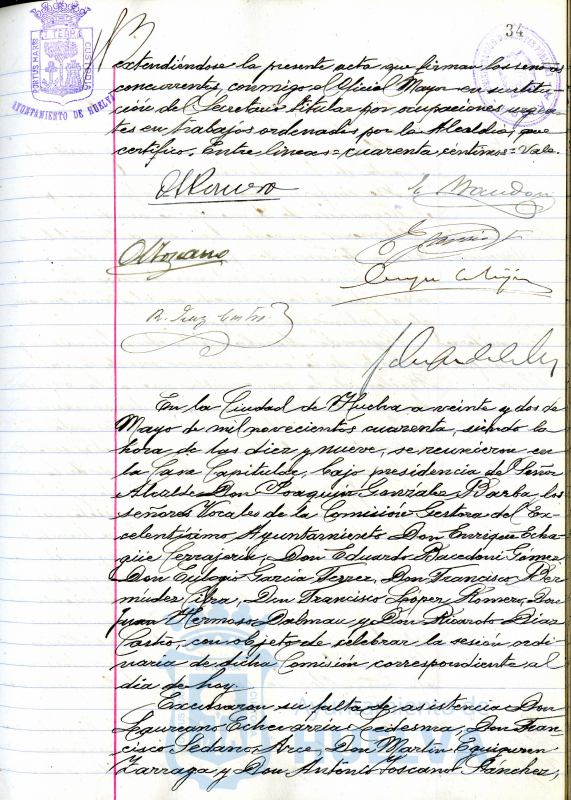 34
PORTUS MARIS ET TERRE CUSTODIA
AYUNTAMIENTO DE HUELVA
extendiéndose la presente acta que firman los señores
concurrentes, conmigo el Oficial Mayor en sustitu-
ción del Secretario titular por ocupaciones urgen-
tes en trabajos ordenados por la Alcaldía, que
certifico. Entre líneas = cuarenta céntimos = Vale.
En la Ciudad de Huelva a veinte y dos de
Mayo de mil novecientos cuarenta, siendo la
hora de las diez y nueve, se reunieron en
la Casa Capitular, bajo presidencia del Señor
Alcalde Don Joaquín González Barba, los
señores Vocales de la Comisión Gestora del Ex-
celentísimo Ayuntamiento Don Enrique Echa-
Cerrajería, Don Eduardo Bacedoni Gómez
Don Eulogio García Ferrer, Don Francisco Ber-
múdez Don Francisco López Romero, Don
Juan Hermoso Dalmau y Don Ricardo Díaz
Castro, con objeto de celebrar la sesión ordi-
naria de dicha Comisión correspondiente al
día de hoy.
Excusaron su falta de asistencia Don
Laureano Echevarría Ledesma, Don Fran-
cisco Sedano Arce, Don Martín Eguiguren
Zarraga y Don Antonio Toscano Sánchez,
Ayuntamiento de
HUELVA